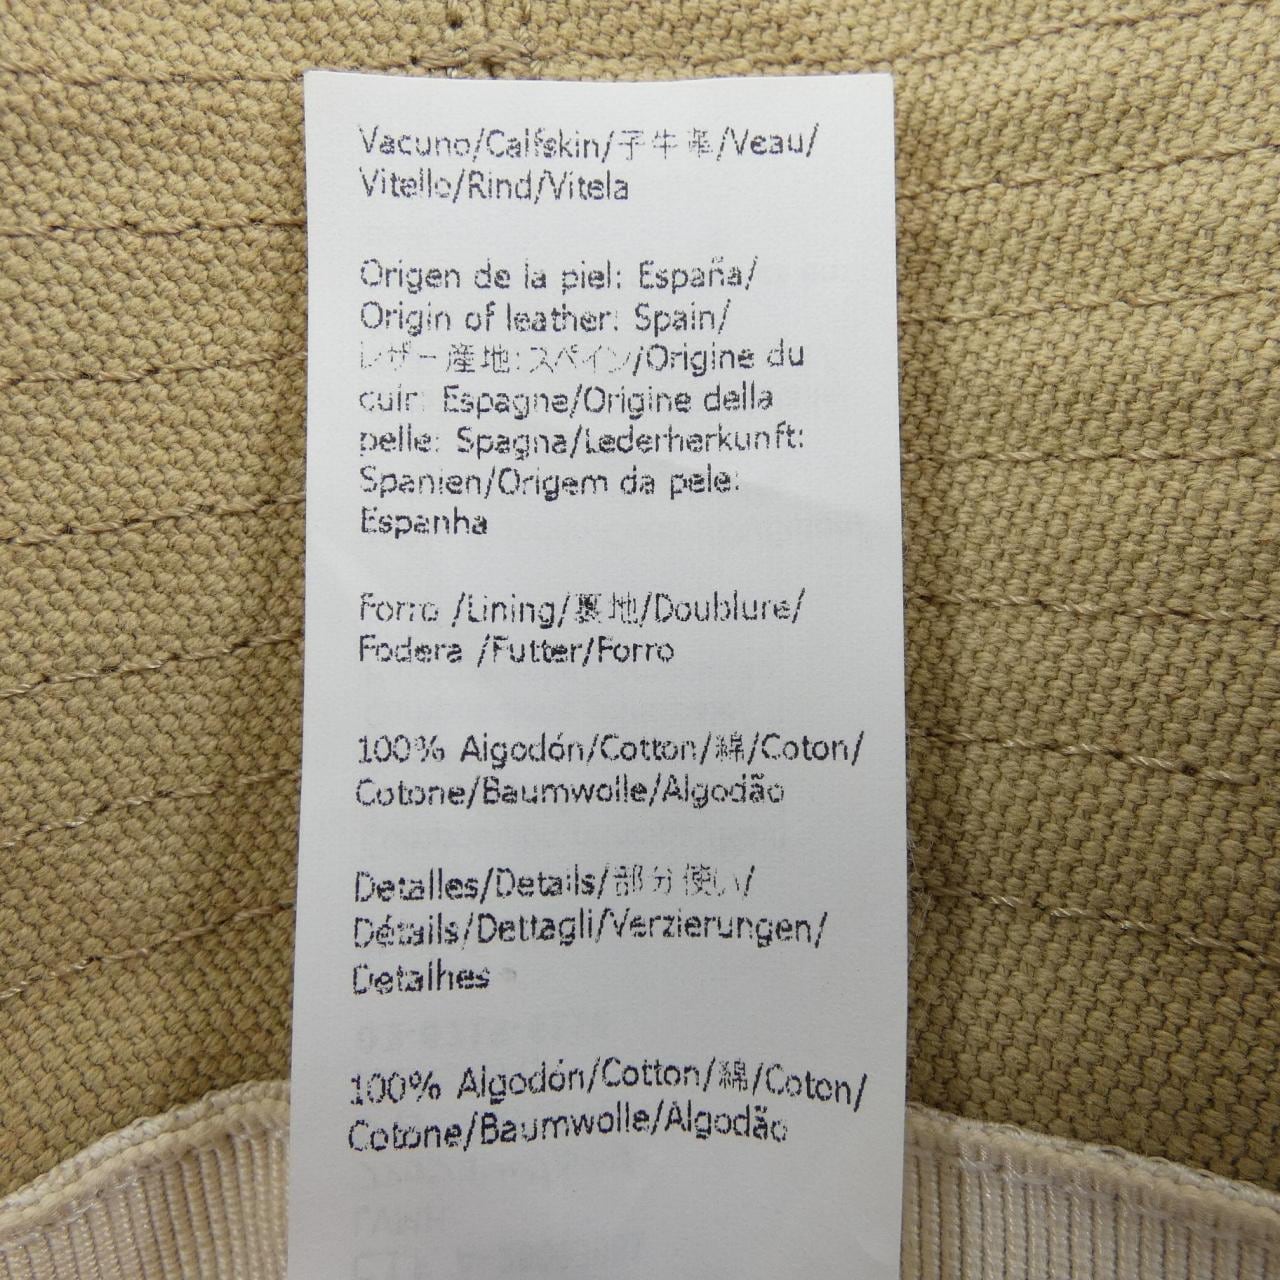 Vacuno/Calfskin/子牛革/Veau/
Vitello/Rind/Vitela
Origen de la piel: España/
Origin of leather: Spain/
レザー産地:スペイン/Origine du
cuir: Espagne/Origine della
pelle: Spagna/Lederherkunft:
Spanien/Origem da pele:
Espanha
Forro /Lining/裏地/Doublure/
Fodera /Futter/Forro
100% Algodón/Cotton/綿/Coton/
Cotone/Baumwolle/Algodão
Detalles/Details/部分使い/
Détails/Dettagli/Verzierungen/
Detalhes
100% Algodón/Cotton/綿/Coton/
Cotone/Baumwolle/Algodão